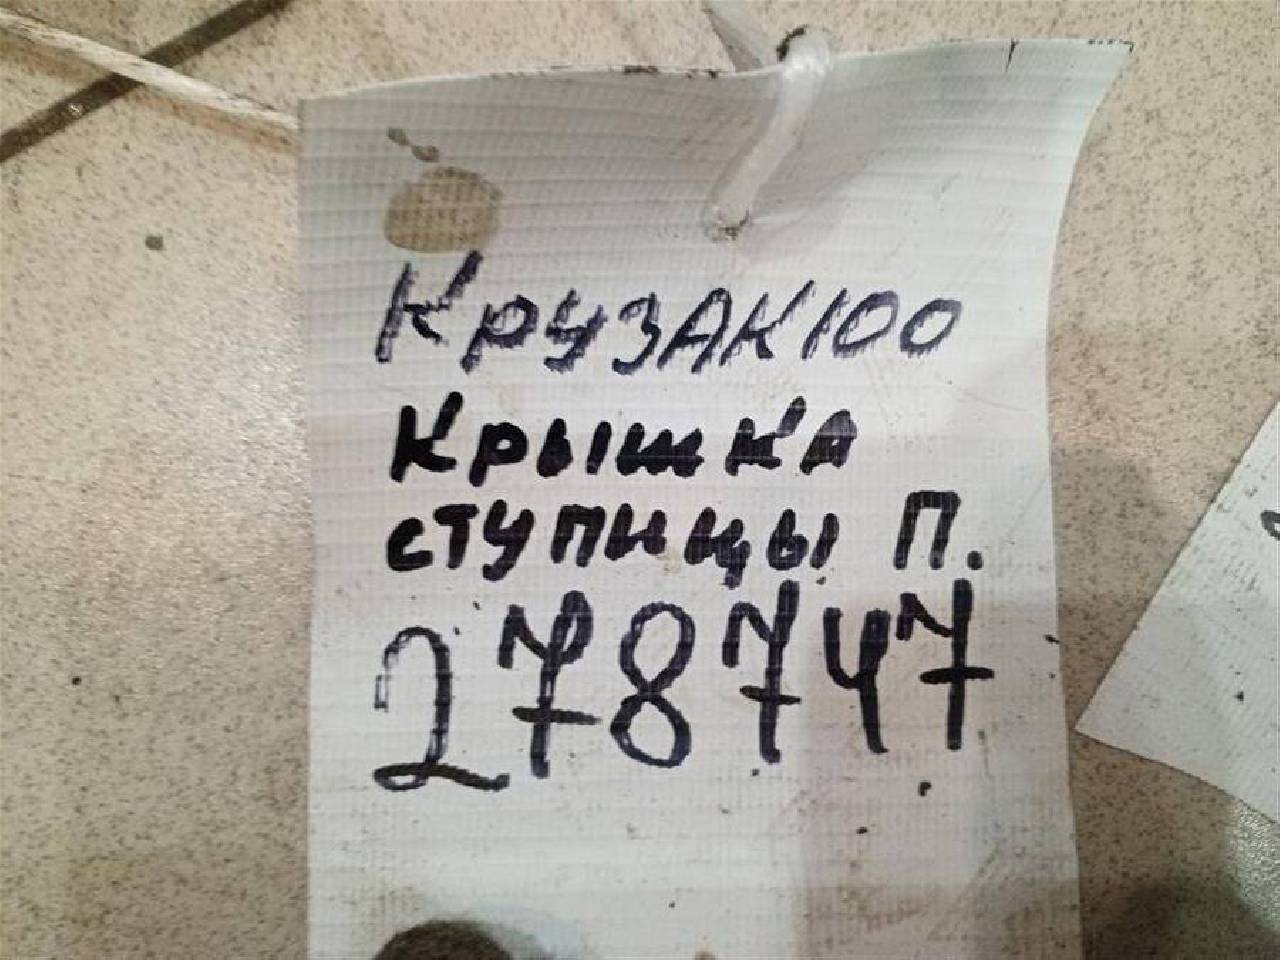 КрузАК100
Крышка
ступицы П.
278747